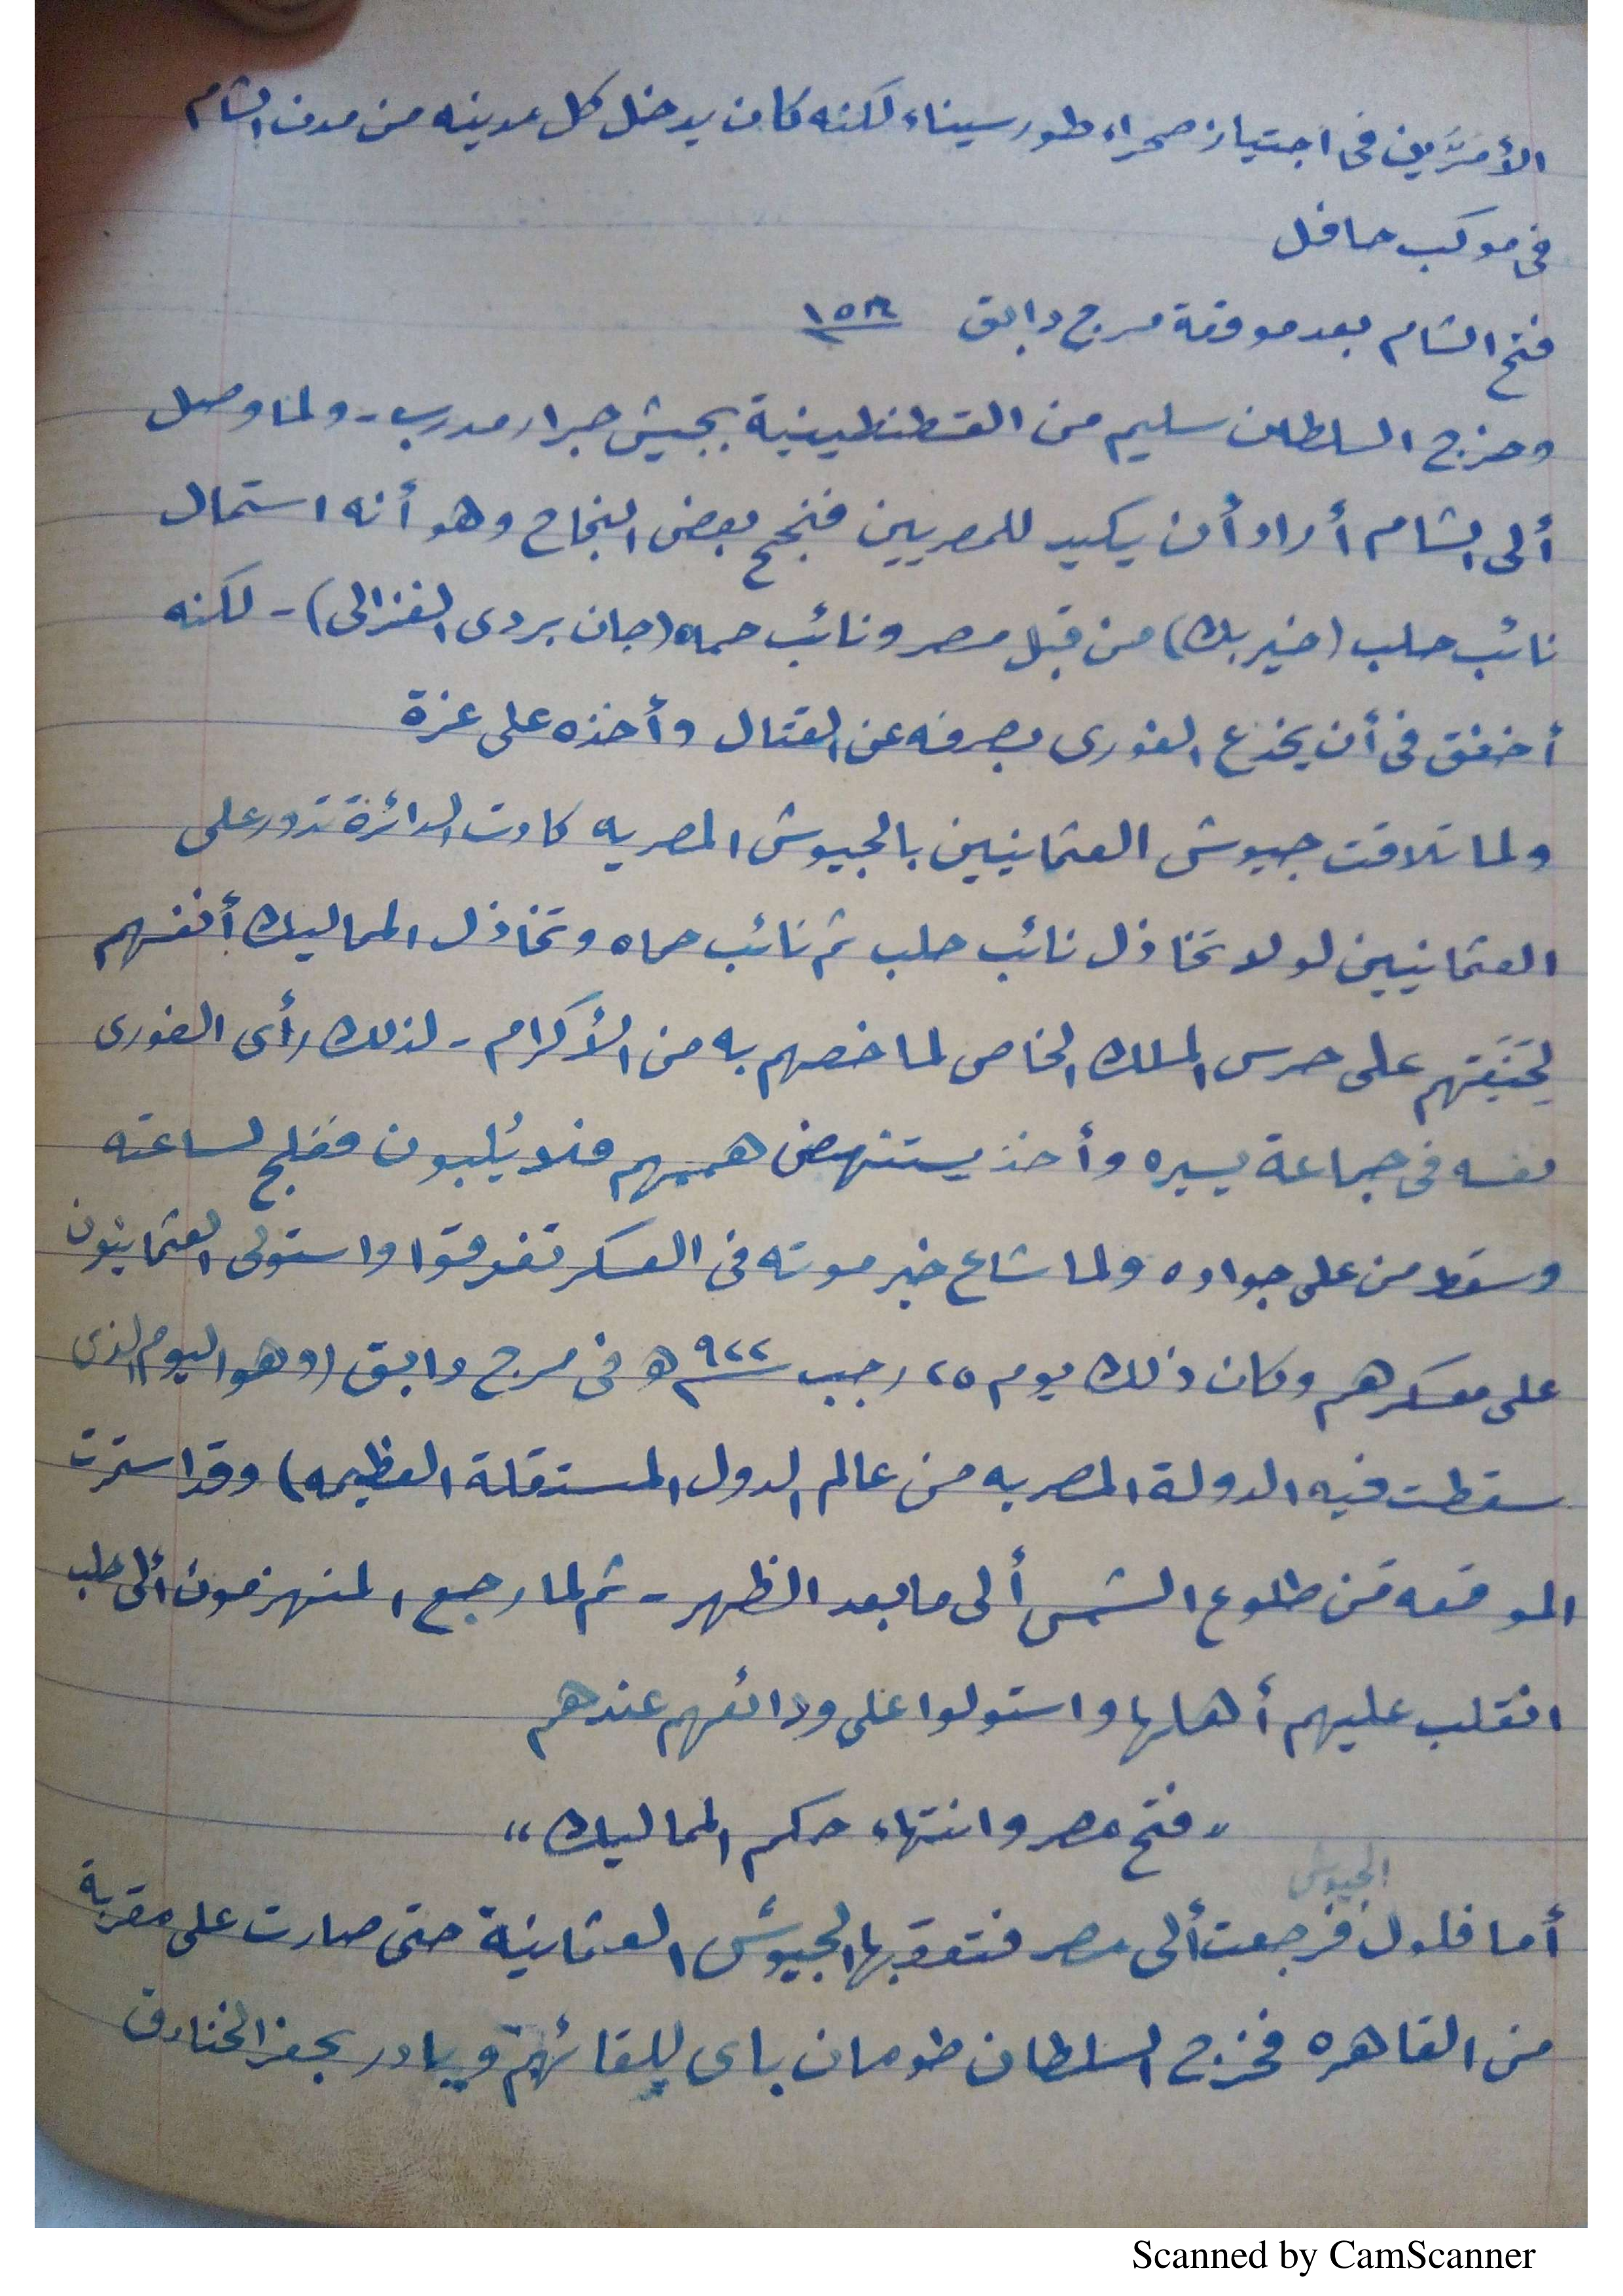 الأمرَّين فى اجتياز صحراء طور سيناء لكنه كان يدخل كل مدينه من مدن الشام
فى موكب حافل
فتح الشام بعد موقعة مرج دابق
وخرج السلطان سليم من القسطنطينية بجيش جرار مدرب - ولما وصل
ألى الشام أراد أن يكيد للمصريين فنجح بعض النجاح وهو أنه استمال
نائب حلب (خير بك) من قبل مصر ونائب حماه (جان بردى الغزالى) - لكنه
أخفق فى أن يخدع الغورى بصرفه عن القتال وأخذه على غرة
ولما تلاقت جيوش العثمانيين بالجيوش المصريه كادت الدائرة تدور على
العثمانيين لولا تخاذل نائب حلب ثم نائب حماه وتخاذل المماليك أنفسهم
على حرس الملك الخاص لما خصهم به من الأكرام - لذلك رأى الغورى
نفسه فى جماعة يسيره وأخذ يستنهض هممهم فلا يُلبون ففلج لساعته
وسقط من على جواده ولما شاع خبر موته فى العسكر تفرقوا واستولى العثمانيون
على معسكرهم وكان ذلك يوم ٢٥ رجب ٩٢٢ ه فى مرج دابق (وهو اليوم الذى
سقطت فيه الدولة المصريه من عالم الدول المستقلة العظيمه) وقد استمرت
الموقعه من طلوع الشمس ألى ما بعد الظهر - ثم لما رجع المنهزمون ألى حلب
انقلب عليهم أهلها واستولوا على ودائعهم عندهم
"فتح مصر وانتهاء حكم المماليك"
الجيوش
أما فلول فرجعت ألى مصر فتعقبها الجيوش العثمانية حتى صارت على مقربة
من القاهره فخرج السلطان طومان باى للقائهم وبادر بحفر الخنادق
Scanned by CamScanner